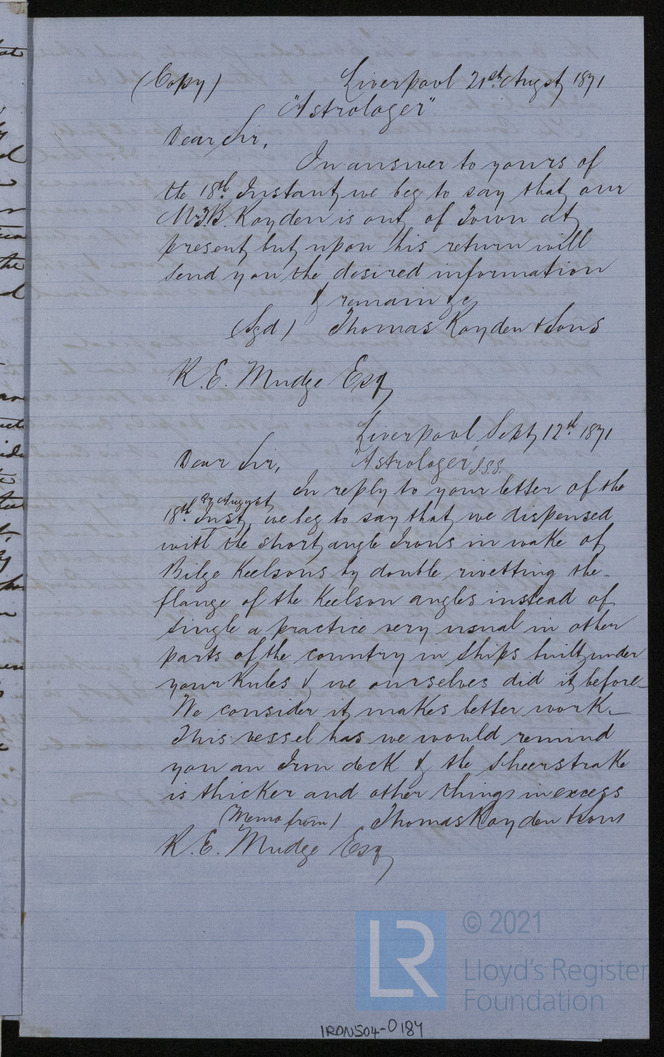 (Copy) Liverpool 21st Augst 1871
"Astrologer"
Dear Sir,
In answer to yours of
the 18th Instant we beg to say that our
Mr T.B. Royden is out of Town at
present but upon his return will
send you the desired information
& remain &c
(Sgd) Thomas Royden & Sons
R. E. Mudge Esq
Liverpool Sept 12th 1871
Dear Sir, "Astrologer" S.S.
In reply to your letter of the
18th Inst, of August we beg to say that we dispensed
with the short angle Irons in wake of
Bilge Keelsons by double rivetting the
flange of the Keelson angles instead of
single a practice very usual in other
parts of the country in Ships built under
your Rules & we ourselves did it before
We consider it makes better work
This vessel has we would remind
you an Iron deck & the Sheerstrake
is thicker and other things in excess
(Memo from) Thomas Royden & Sons
R. E. Mudge Esq
© 2021
LR
Lloyd's Register
Foundation
IRON504-0187